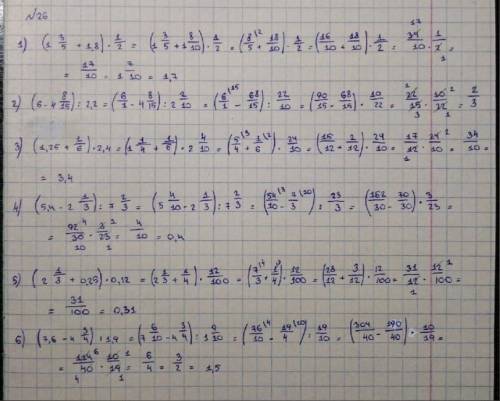 №26
1) (1 3/5 + 1,8) · 1/2 = (1 3/5 + 1 8/10) · 1/2 = (8/5 + 18/10) · 1/2 = (16/10 + 18/10) · 1/2 = 34/10 · 1/2 =
= 17/10 = 1 7/10 = 1,7
2) (6 - 4 8/15) : 2,2 = (6/1 - 4 8/15) : 2 2/10 = (6/1 - 68/15) : 22/10 = (90/15 - 68/15) · 10/22 = 22/15 · 10/22 = 2/3
3) (1,25 + 1/6) · 2,4 = (1 1/4 + 1/6) · 2 4/10 = (5/4 + 1/6) · 24/10 = (15/12 + 2/12) · 24/10 = 17/12 · 24/10 = 34/10 =
= 3,4
4) (5,4 - 2 1/3) : 7 2/3 = (5 4/10 - 2 1/3) : 7 2/3 = (54/10 - 7/3) : 23/3 = (162/30 - 70/30) · 3/23 =
= 92/30 · 3/23 = 4/10 = 0,4
5) (2 1/3 + 0,25) · 0,12 = (2 1/3 + 1/4) · 12/100 = (7/3 + 1/4) · 12/100 = (28/12 + 3/12) · 12/100 = 31/12 · 12/100 =
= 31/100 = 0,31
6) (7,6 - 4 3/4) : 1,9 = (7 6/10 - 4 3/4) : 1 9/10 = (76/10 - 19/4) : 19/10 = (304/40 - 190/40) · 10/19 =
= 114/40 · 10/19 = 6/4 = 3/2 = 1,5